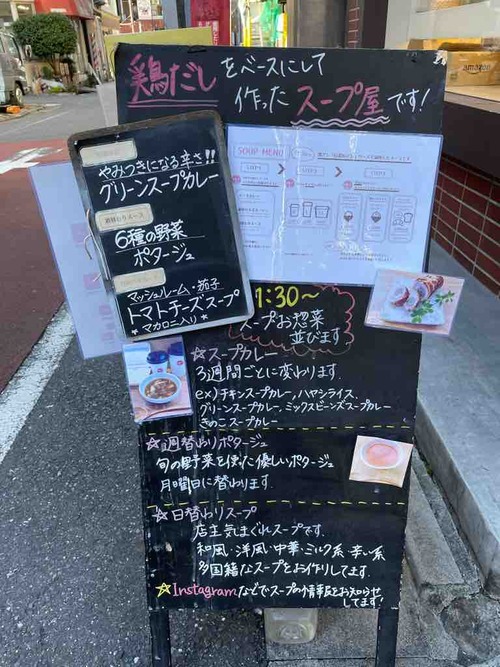 鶏だしをベースにして
作ったスープ屋です!
やみつきになる辛さ!!
グリーンスープカレー
6種の野菜
ポタージュ
マッシュルーム・茄子
トマトチーズスープ
*マカロニ入り*
SOUP MENU
1:30〜
スープお惣菜
並びます
☆スープカレー
3週間ごとに変わります。
ex)チキンスープカレー,ハヤシライス,
グリーンスープカレー,ミックスビーンズスープカレー
きのこスープカレー
☆週替わりポタージュ
旬の野菜を使った優しいポタージュ
月曜日に替わります.
☆日替わりスープ
店主気まぐれスープです.
和風・洋風・中華・ミルク系・辛い系
多国籍なスープをお作りしてます.
☆Instagramなどでスープの情報をお知らせ
してます!
amazon